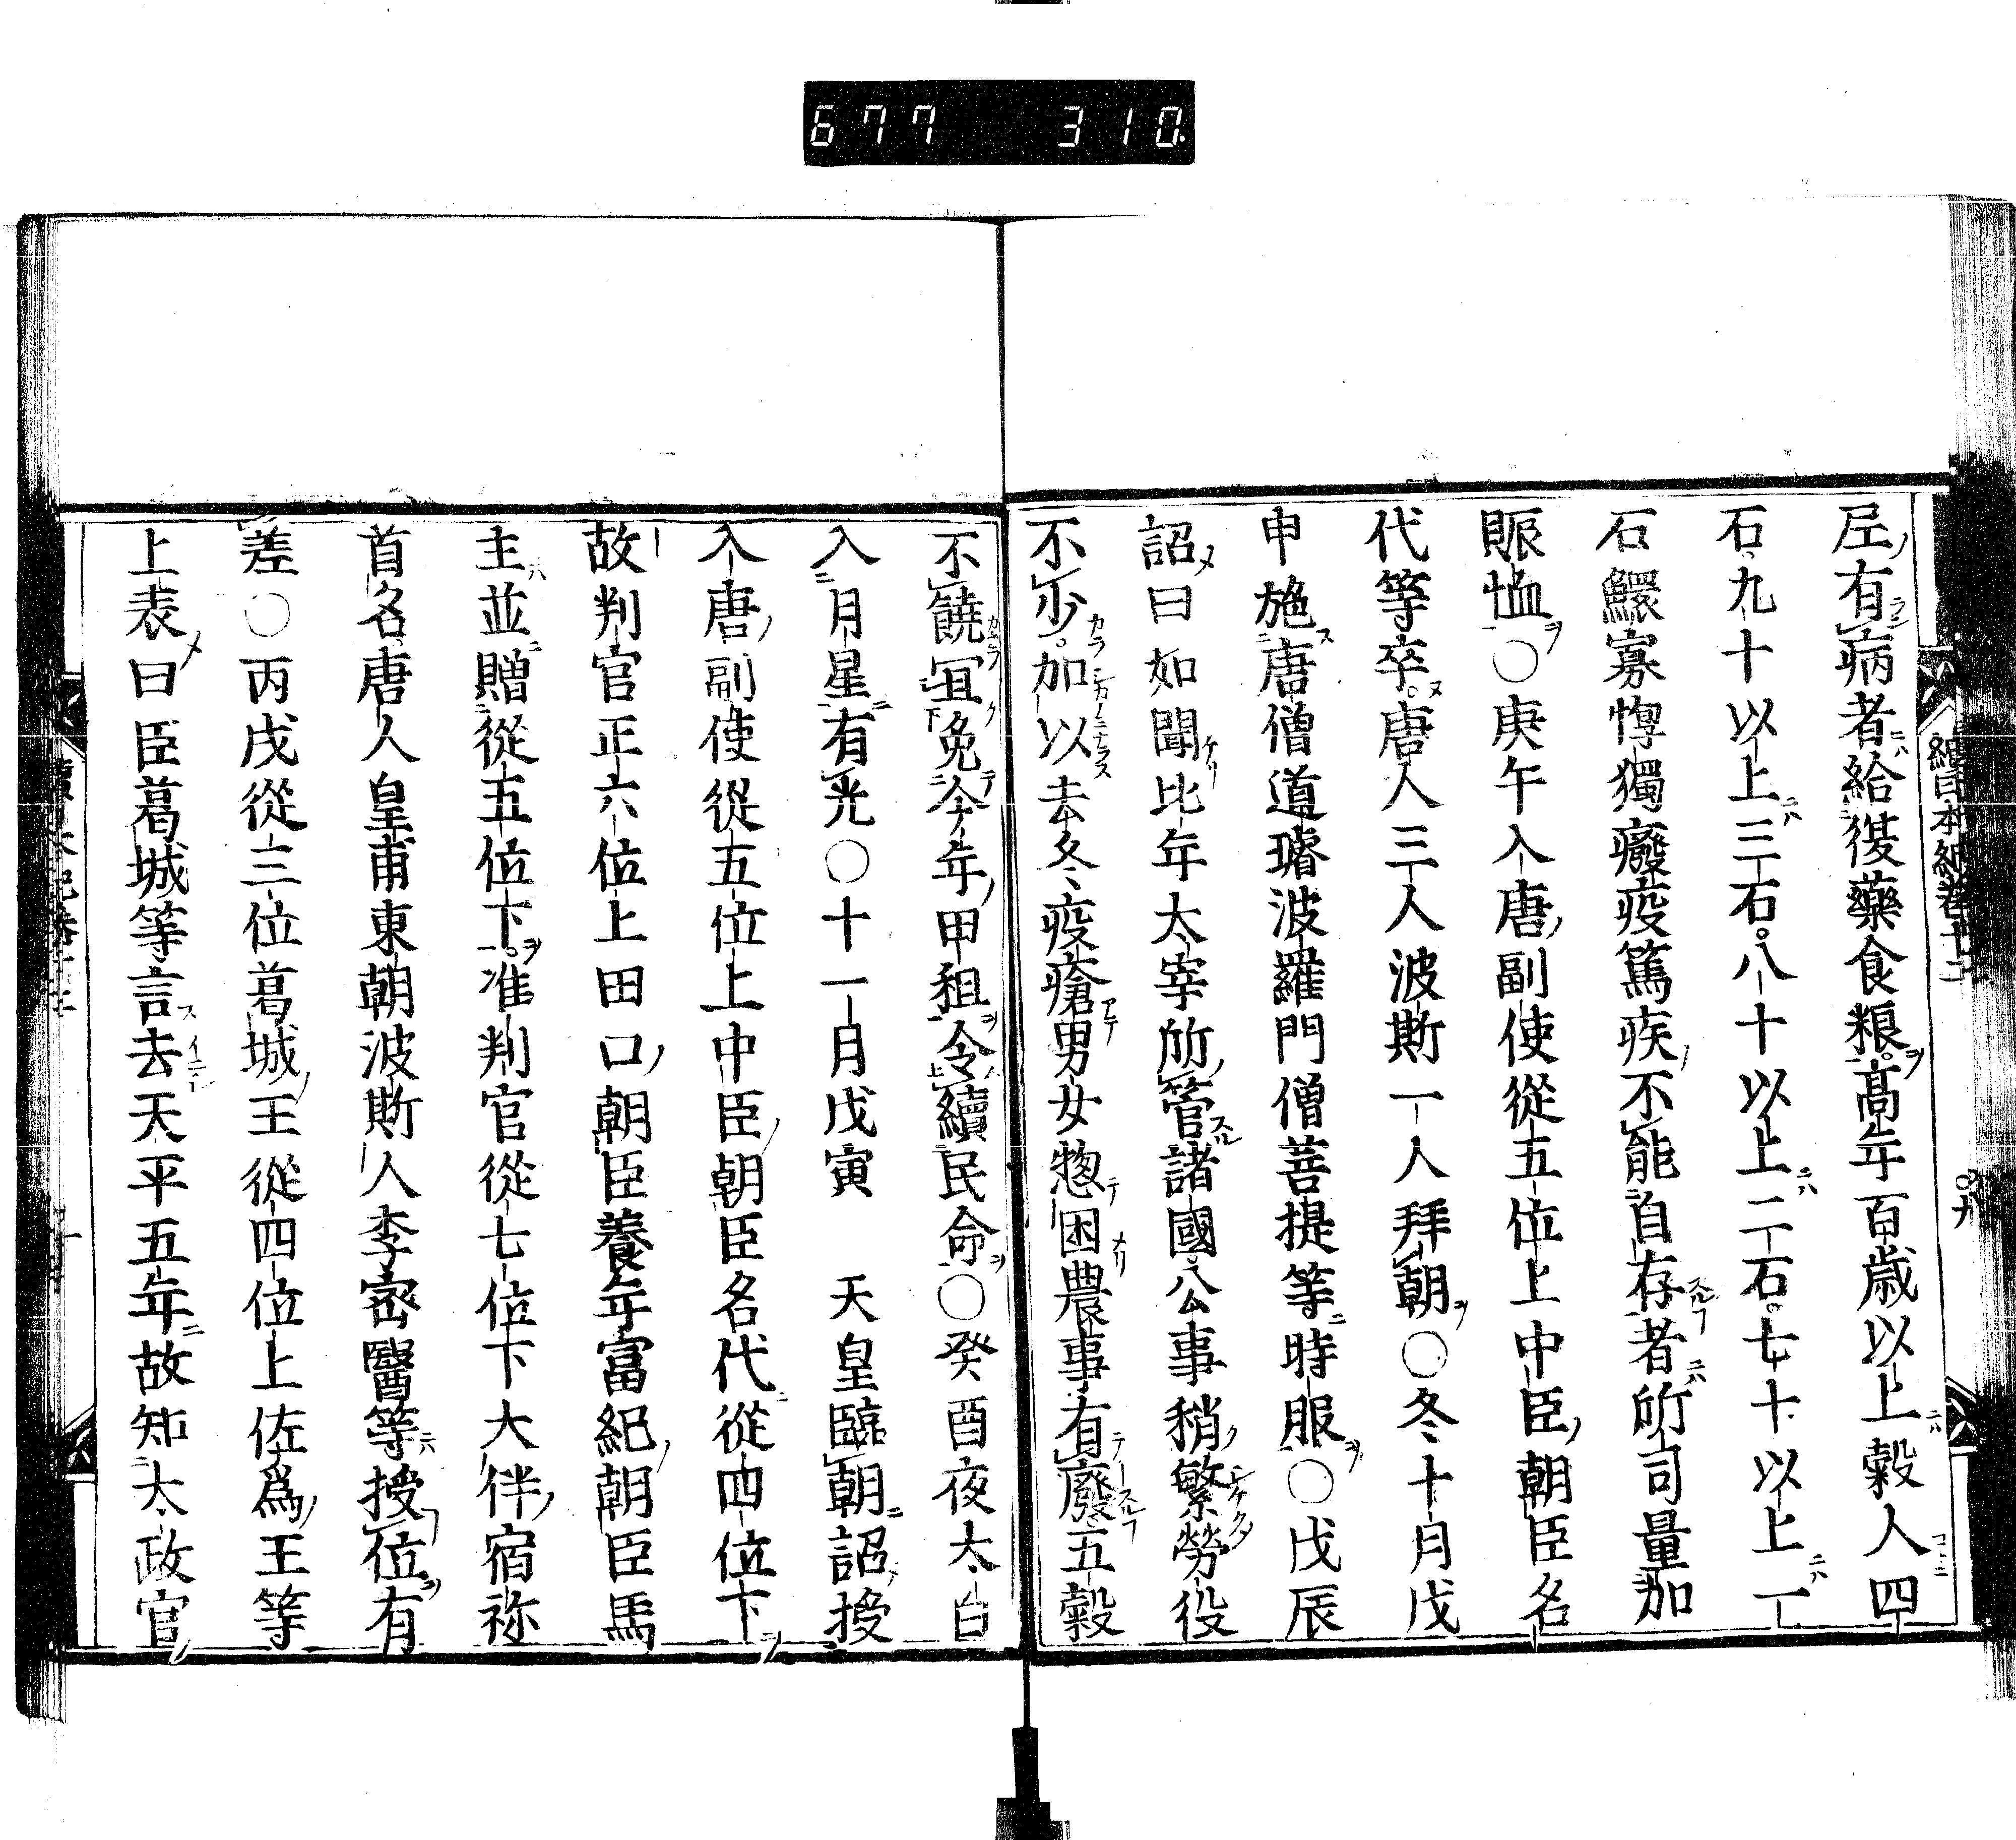 677 310.
續日本紀卷十二
○九
尼有病者給復藥食粮高年百歲以上穀人四
石九十以上三石八十以上二石七十以上一
石鰥寡惸獨癈疫篤疾不能自存者所司量加
賑恤○庚午入唐副使從五位上中臣朝臣名
代等卒唐人三人波斯一人拜朝○冬十月戊
申施唐僧道璿波羅門僧菩提等時服○戊辰
詔曰如聞比年太宰所管諸國公事稍繁勞役
不少加以去冬疫瘡男女惣困農事有廢五穀
不饒宜免今年甲租令續民命○癸酉夜太白
入月星有光○十一月戊寅 天皇臨朝詔授
入唐副使從五位上中臣朝臣名代從四位下
故判官正六位上田口朝臣養年富紀朝臣馬
主並贈從五位下准判官從七位下大伴宿祢
首名唐人皇甫東朝波斯人李密醫等授位有
差○丙戌從三位葛城王從四位上佐爲王等
上表曰臣葛城等言去天平五年故知太政官